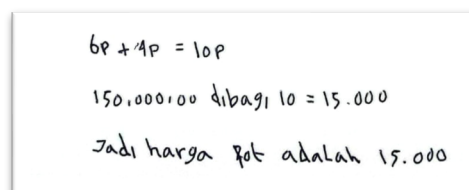 6p + 4p = 10p
150.000,00 dibagi 10 = 15.000
Jadi harga pot adalah 15.000